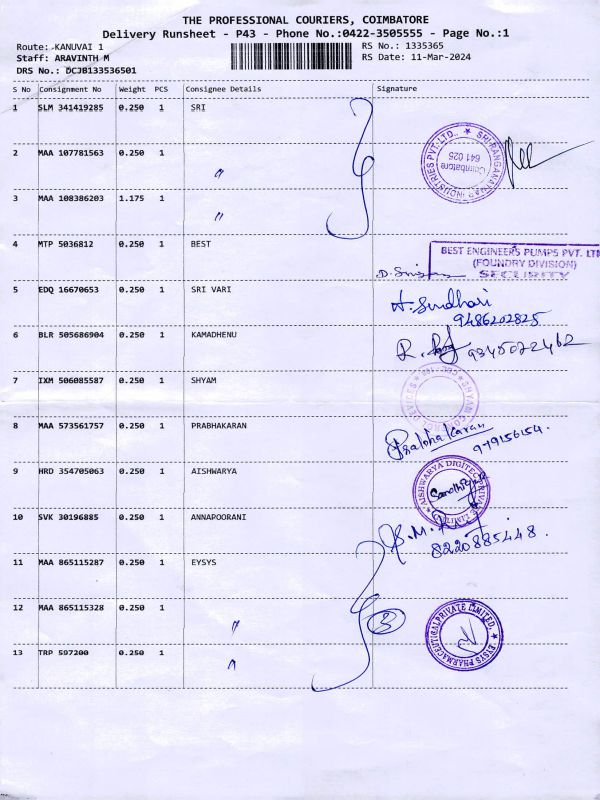 THE PROFESSIONAL COURIERS, COIMBATORE
Delivery Runsheet - P43 - Phone No.:0422-3505555 - Page No.:1
Route: KANUVAI 1
RS No.: 1335365
Staff: ARAVINTH M
RS Date: 11-Mar-2024
DRS No.: DCJB133536501
S No Consignment No Weight PCS Consignee Details Signature
1 SLM 341419285 0.250 1 SRI
2 MAA 107781563 0.250 1 "
SRI RANGANATHAR INDUSTRIES PVT. LTD.,
Coimbatore
641 025
3 MAA 108386203 1.175 1 "
4 MTP 5036812 0.250 1 BEST
BEST ENGINEERS PUMPS PVT. LTD
(FOUNDRY DIVISION)
SECURITY
5 EDQ 16670653 0.250 1 SRI VARI
A. Sundhari
9486202825
6 BLR 505686904 0.250 1 KAMADHENU
R. 9345022462
7 IXM 506085587 0.250 1 SHYAM
SHYAM DEVICES
8 MAA 573561757 0.250 1 PRABHAKARAN
Prabhakaran
979156154.
9 HRD 354705063 0.250 1 AISHWARYA
AISHWARYA DIGITEC PRIVATE LIMITED
10 SVK 30196885 0.250 1 ANNAPOORANI
8220885448.
11 MAA 865115287 0.250 1 EYSYS
12 MAA 865115328 0.250 1 "
3
EYSYS PHARMACEUTICAL PRIVATE LIMITED.
13 TRP 597200 0.250 1 "